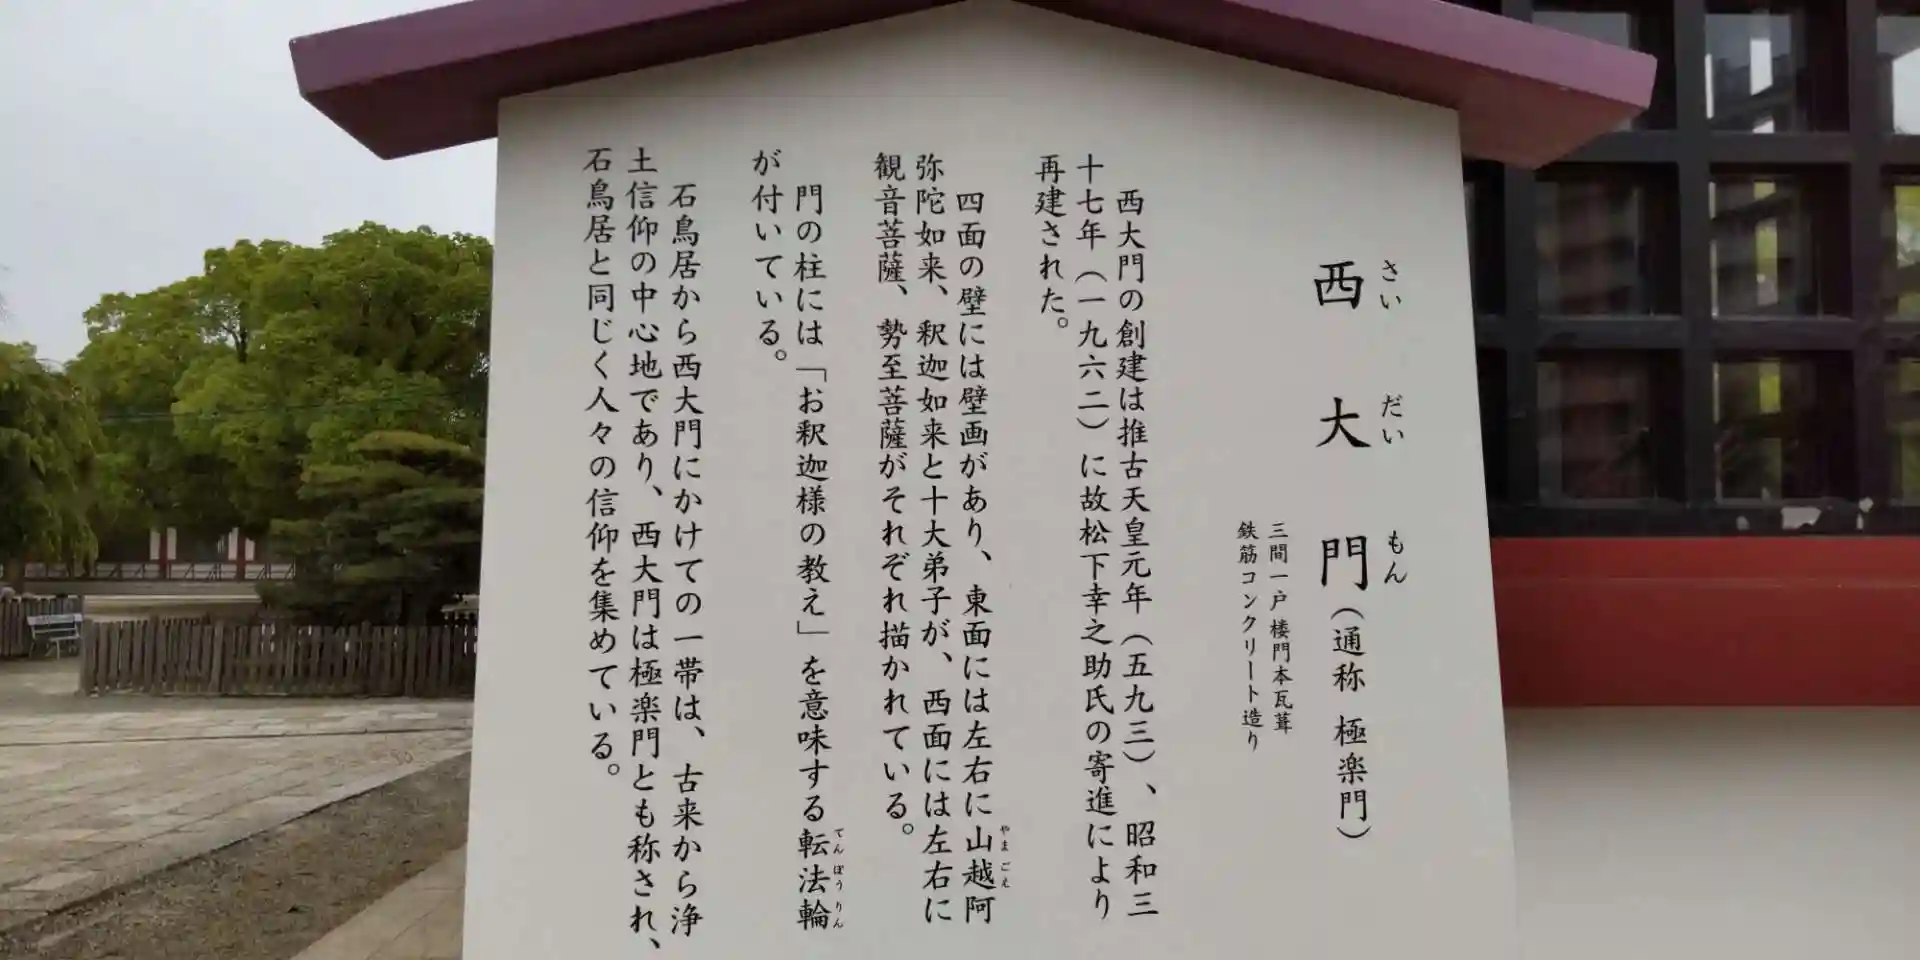 西大門（通称 極楽門）
さいだいもん
三間一戸楼門本瓦葺
鉄筋コンクリート造り
西大門の創建は推古天皇元年（五九三）、昭和三
十七年（一九六二）に故松下幸之助氏の寄進により
再建された。
四面の壁には壁画があり、東面には左右に山越阿
やまごえ
弥陀如来、釈迦如来と十大弟子が、西面には左右に
観音菩薩、勢至菩薩がそれぞれ描かれている。
門の柱には「お釈迦様の教え」を意味する転法輪
てんぽうりん
が付いている。
石鳥居から西大門にかけての一帯は、古来から浄
土信仰の中心地であり、西大門は極楽門とも称され、
石鳥居と同じく人々の信仰を集めている。